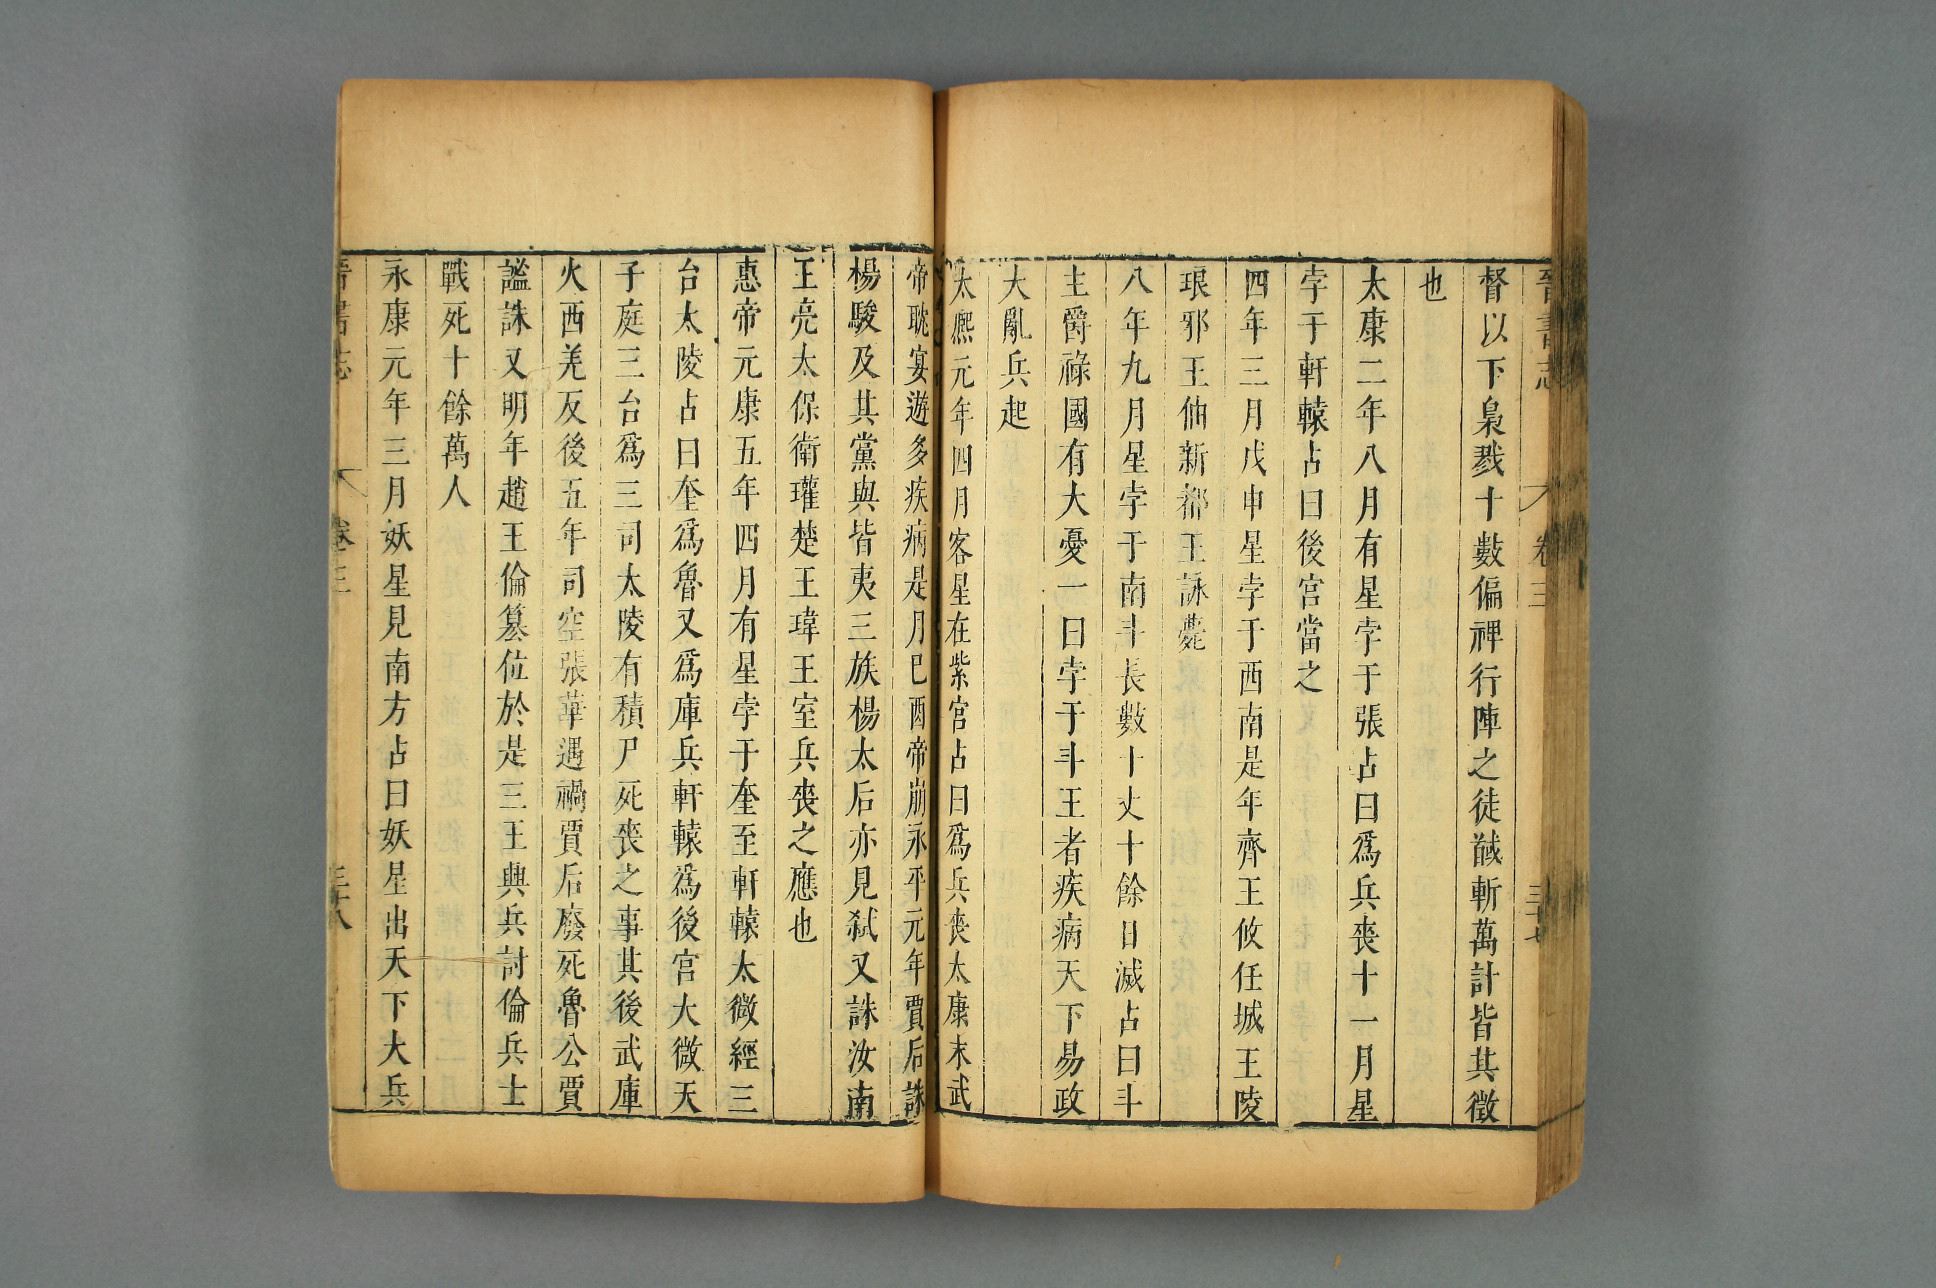 晉書志 卷三 三十七
督以下梟戮十數偏裨行陣之徒馘斬萬計皆其徵
也
太康二年八月有星孛于張占曰爲兵喪十一月星
孛于軒轅占曰後宮當之
四年三月戊申星孛于西南是年齊王攸任城王陵
琅邪王伷新都王詠薨
八年九月星孛于南斗長數十丈十餘日滅占曰斗
主爵祿國有大憂一曰孛于斗王者疾病天下易政
大亂兵起
太熈元年四月客星在紫宮占曰爲兵喪太康末武
帝耽宴遊多疾病是月巳酉帝崩永平元年賈后誅
楊駿及其黨與皆夷三族楊太后亦見弑又誅汝南
王亮太保衛瓘楚王瑋王室兵喪之應也
惠帝元康五年四月有星孛于奎至軒轅太微經三
台太陵占曰奎爲魯又爲庫兵軒轅爲後宮大微天
子庭三台爲三司太陵有積尸死喪之事其後武庫
火西羌反後五年司空張華遇禍賈后廢死魯公賈
謐誅又明年趙王倫簒位於是三王興兵討倫兵士
戰死十餘萬人
永康元年三月妖星見南方占曰妖星出天下大兵
晉書志 卷三 三十八